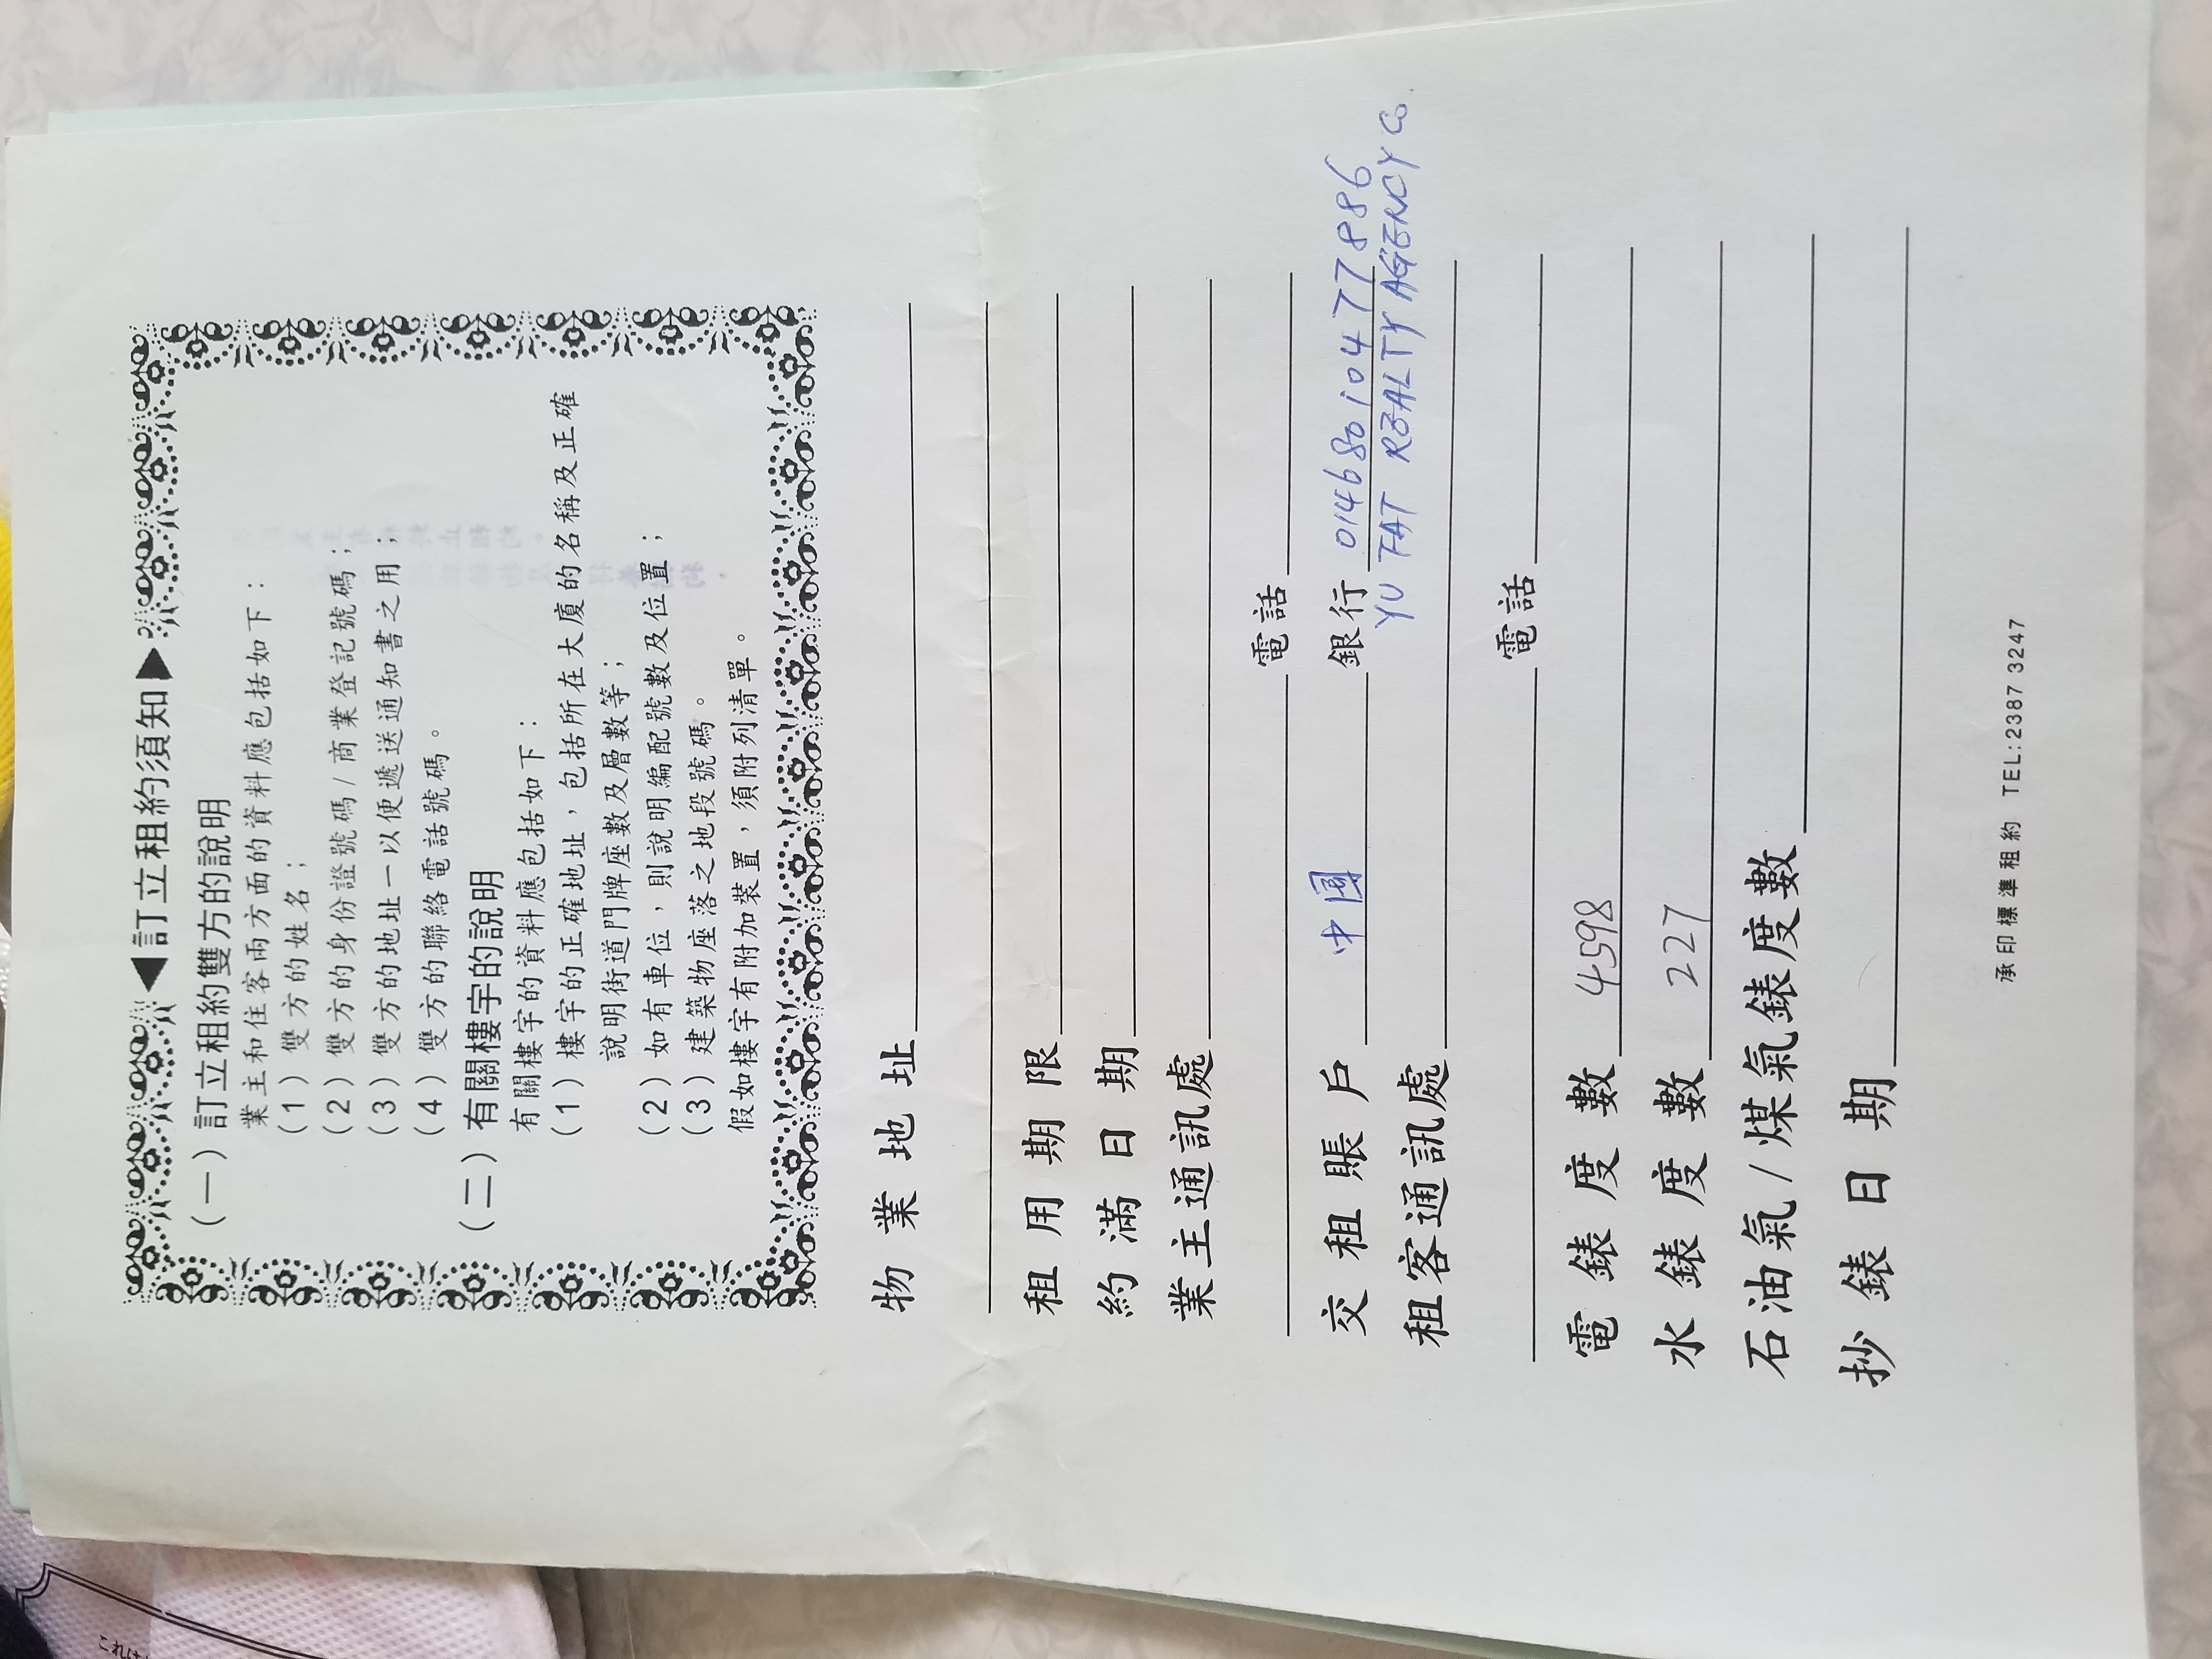 ◀訂立租約須知▶
(一) 訂立租約雙方的說明
業主和住客兩方面的資料應包括如下：
(1) 雙方的姓名；
(2) 雙方的身份證號碼/商業登記號碼；
(3) 雙方的地址一以便遞送通知書之用；
(4) 雙方的聯絡電話號碼。
(二) 有關樓宇的說明
有關樓宇的資料應包括如下：
(1) 樓宇的正確地址，包括所在大廈的名稱及正確
說明街道門牌座數及層數等；
(2) 如有車位，則說明編配號數及位置；
(3) 建築物座落之地段號碼。
假如樓宇有附加裝置，須附列清單。
物業地址
租用期限
約滿日期
業主通訊處
電話
交租賬戶 中國 銀行 01468010477886
YU FAT REALTY AGENCY Co.
租客通訊處
電話
電錶度數 4598
水錶度數 227
石油氣/煤氣錶度數
抄錶日期
承印標準租約 TEL:2387 3247